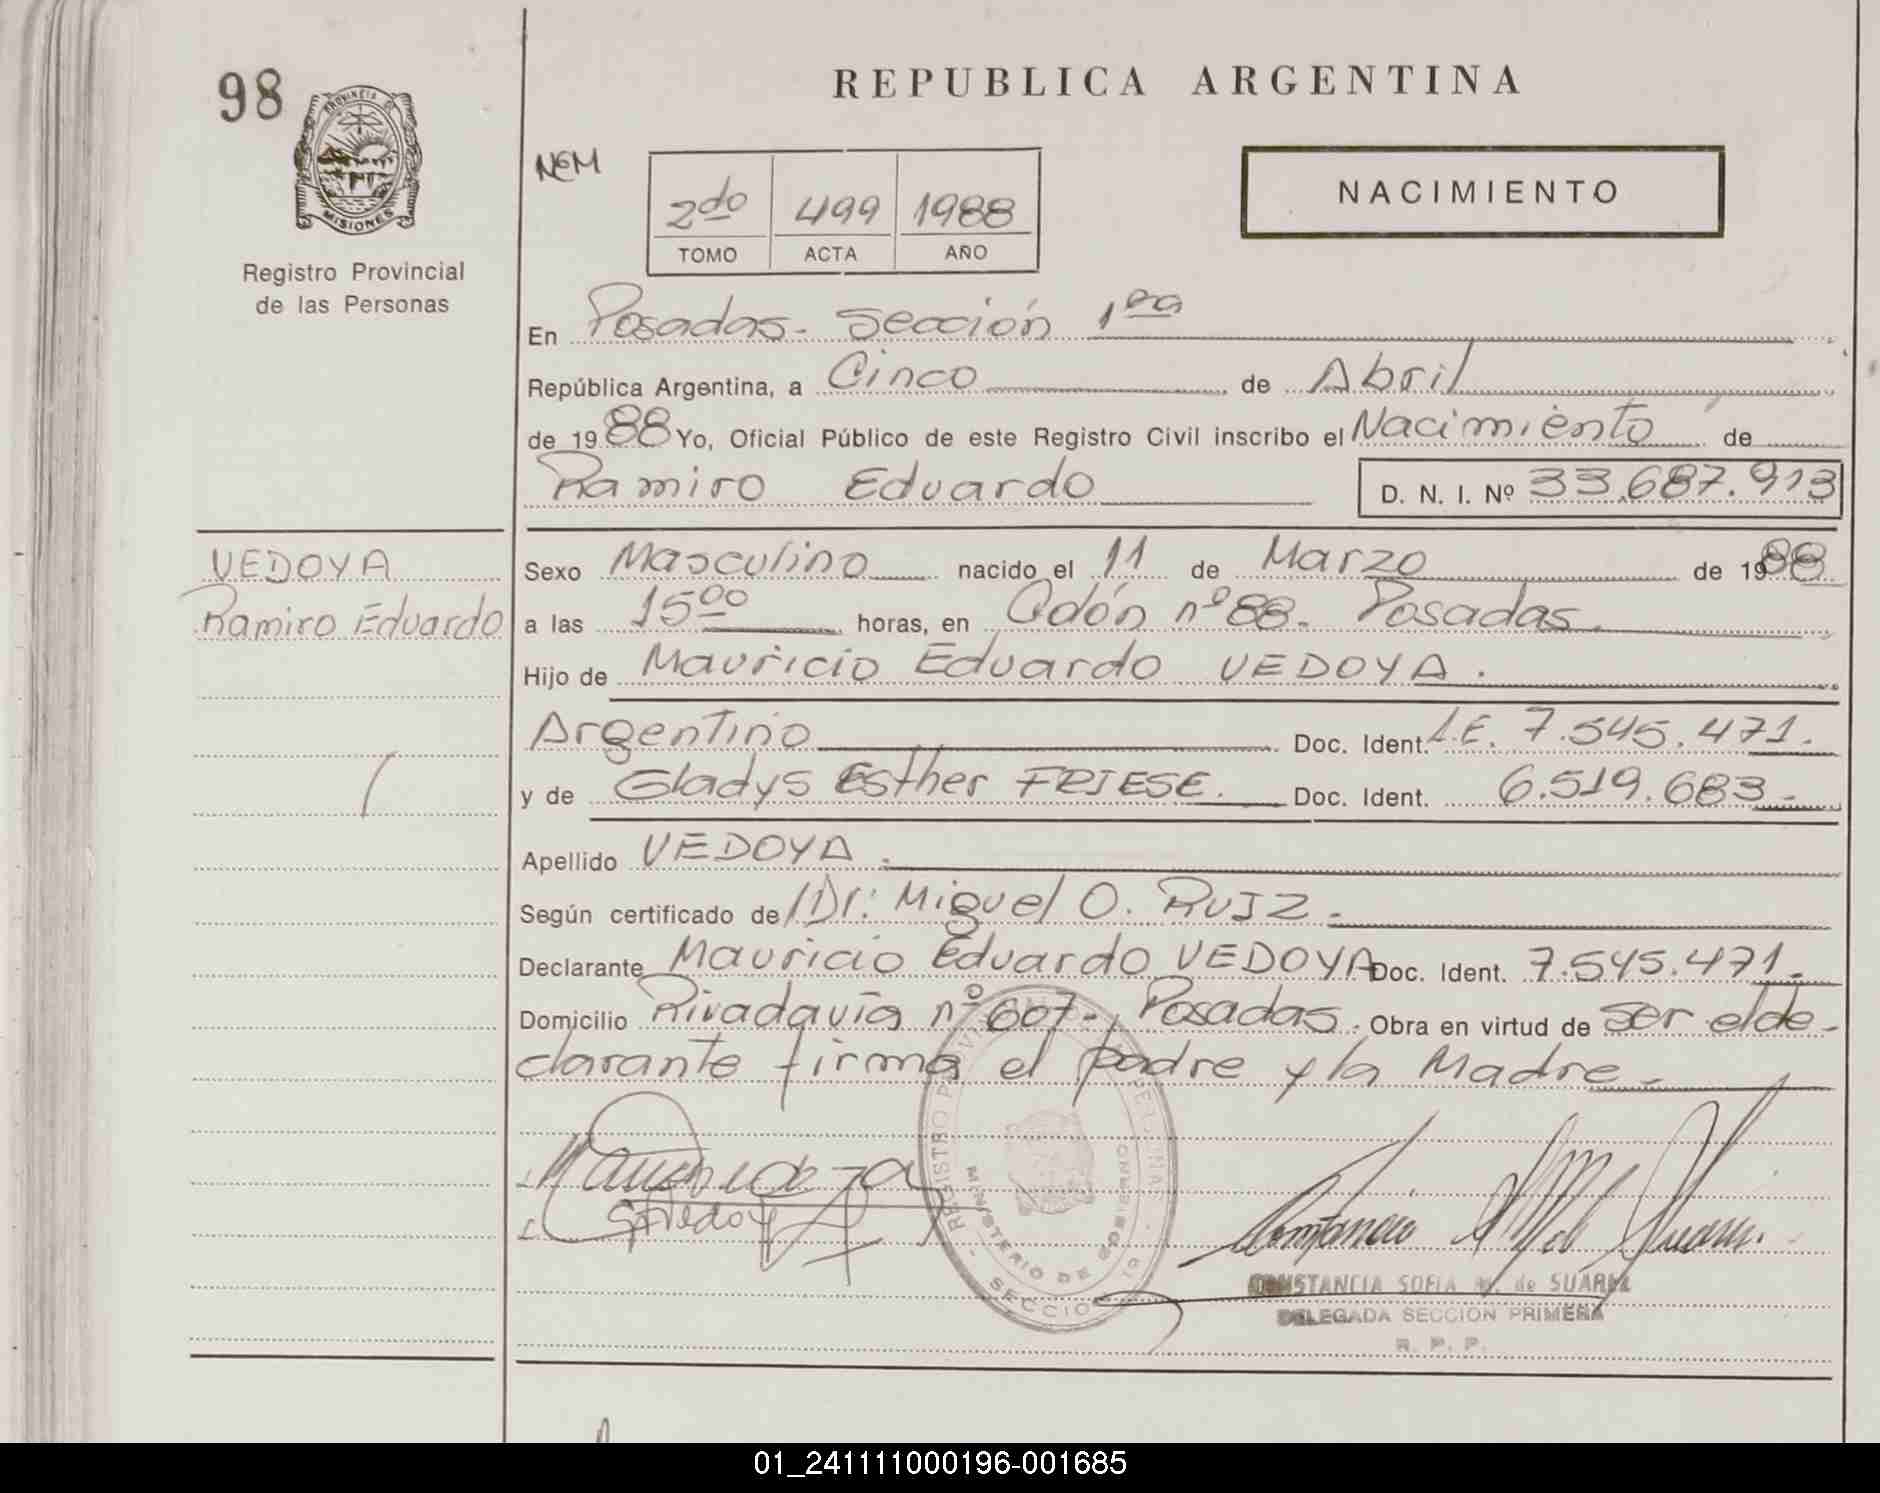 98
PROVINCIA DE
MISIONES
Registro Provincial
de las Personas
REPUBLICA ARGENTINA
NEM
2do 499 1988
TOMO ACTA AÑO
NACIMIENTO
En Posadas - Sección 1ra
República Argentina, a Cinco de Abril
de 1988 Yo, Oficial Público de este Registro Civil inscribo el Nacimiento de
Ramiro Eduardo D. N. I. Nº 33.687.913
VEDOYA
Ramiro Eduardo
Sexo Masculino nacido el 11 de Marzo de 1988
a las 15oo horas, en Odón nº 88. Posadas.
Hijo de Mauricio Eduardo VEDOYA.
Argentino Doc. Ident. L.E. 7.545.471.
y de Gladys Esther FRIESE. Doc. Ident. 6.519.683.-
Apellido VEDOYA.
Según certificado de Dr. Miguel O. RUIZ.
Declarante Mauricio Eduardo VEDOYA Doc. Ident. 7.545.471.-
Domicilio Rivadavia nº 607-, Posadas. Obra en virtud de ser el de-
clarante firma el padre y la Madre.-
REGISTRO PROVINCIAL DE LAS PERSONAS
MINISTERIO DE GOBIERNO
SECCION
CONSTANCIA SOFIA M. de SUAREZ
DELEGADA SECCION PRIMERA
R. P. P.
01_241111000196-001685